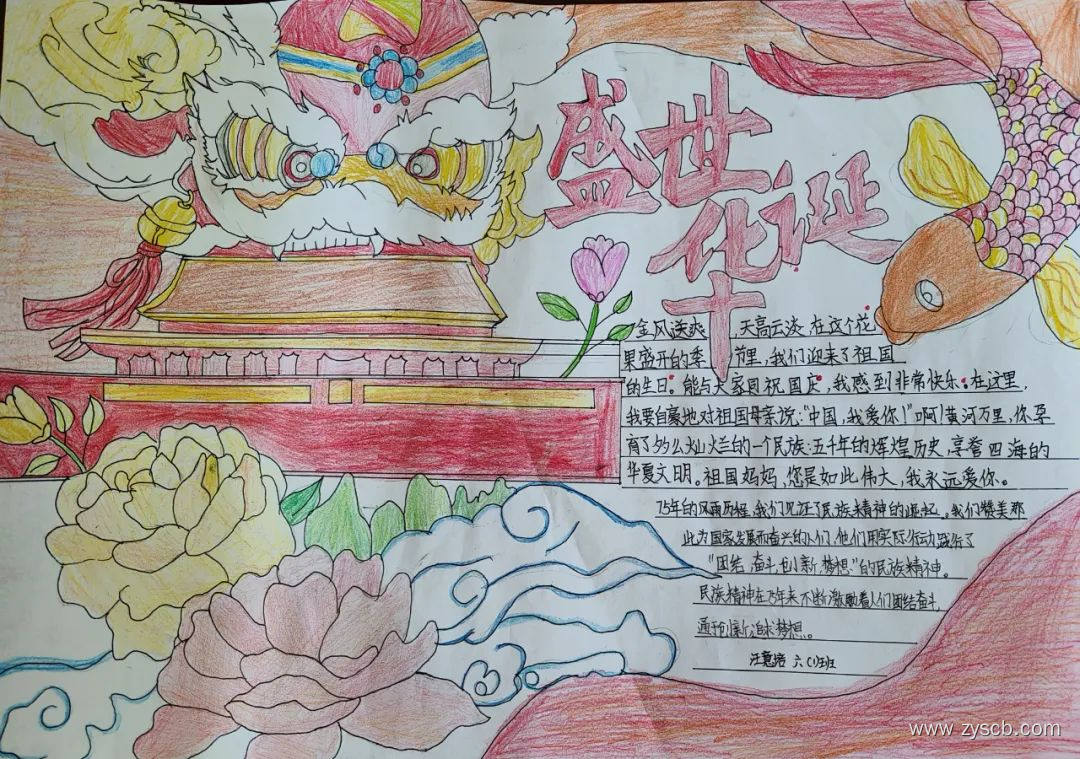 盛世
华诞
金风送爽 天高云淡、在这个花
果盛开的季 节里，我们迎来了祖国
的生日。能与大家同祝国庆，我感到非常快乐。在这里，
我要自豪地对祖国母亲说："中国，我爱你！"啊！黄河万里，你孕
育了多么灿烂的一个民族：五千年的辉煌历史，享誉四海的
华夏文明。祖国妈妈，您是如此伟大，我永远爱你。
75年的风雨历程，我们见证了民族精神的崛起。我们赞美那
些为国家发展而奋斗的人们，他们用实际行动践行了
"团结、奋斗、创新、梦想"的民族精神。
民族精神在75年来不断激励着人们团结奋斗，
创新追求梦想。
六（1）班
www.zyscb.com